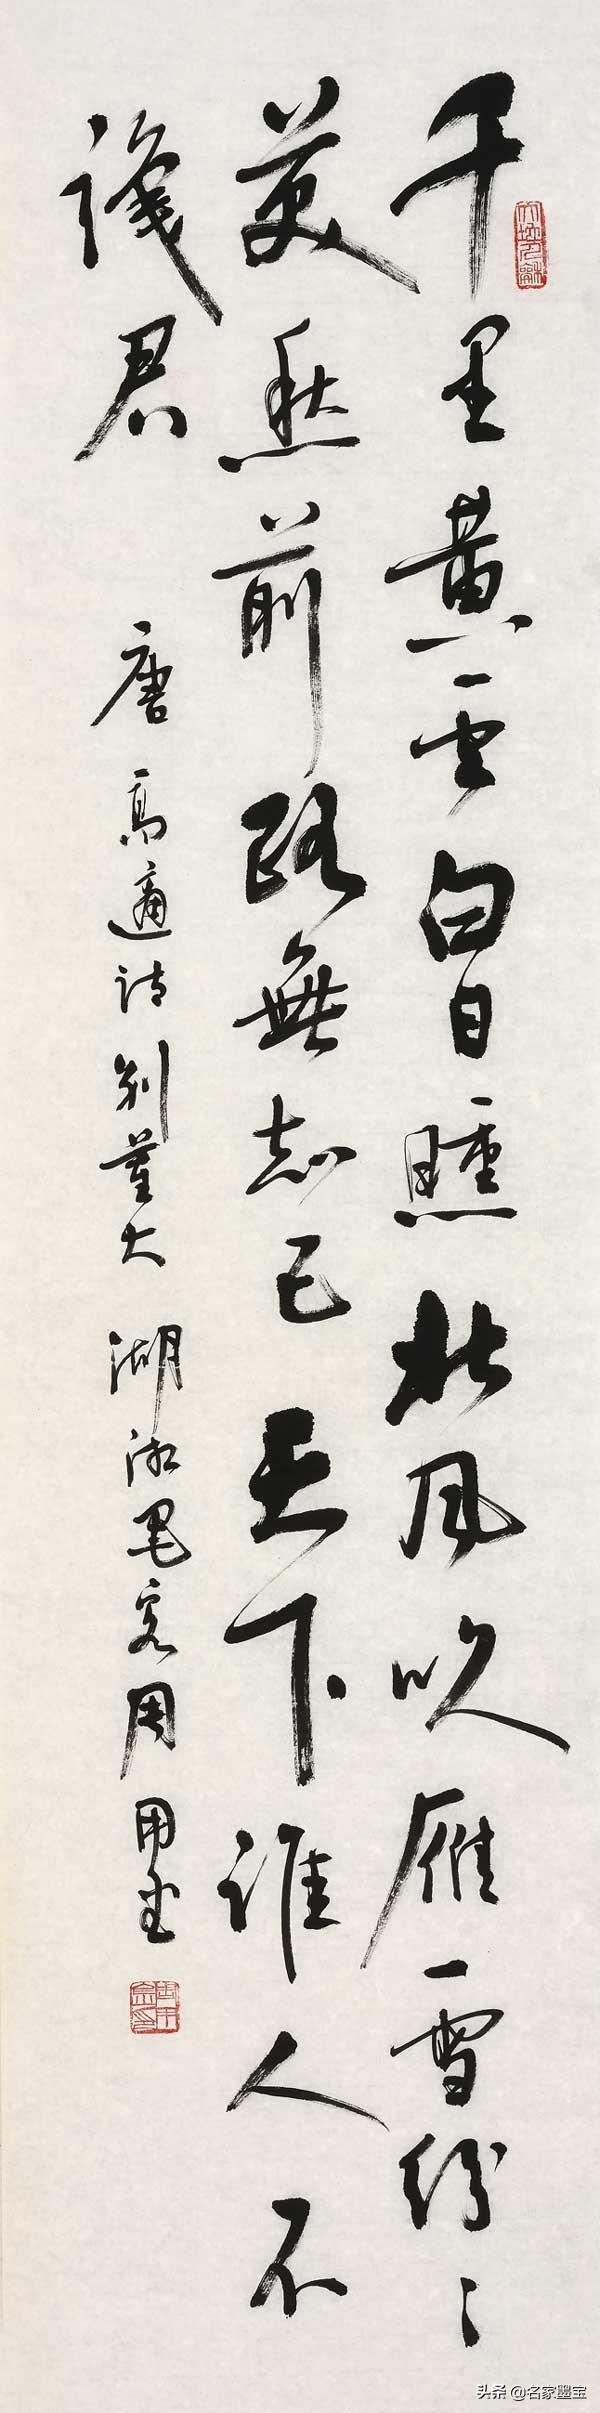 千里黃雲白日曛北風吹雁雪紛々
莫愁前路無知己天下誰人不
識君
唐高適詩別董大 湖湘墨客周用金
头条 @名家墨宝